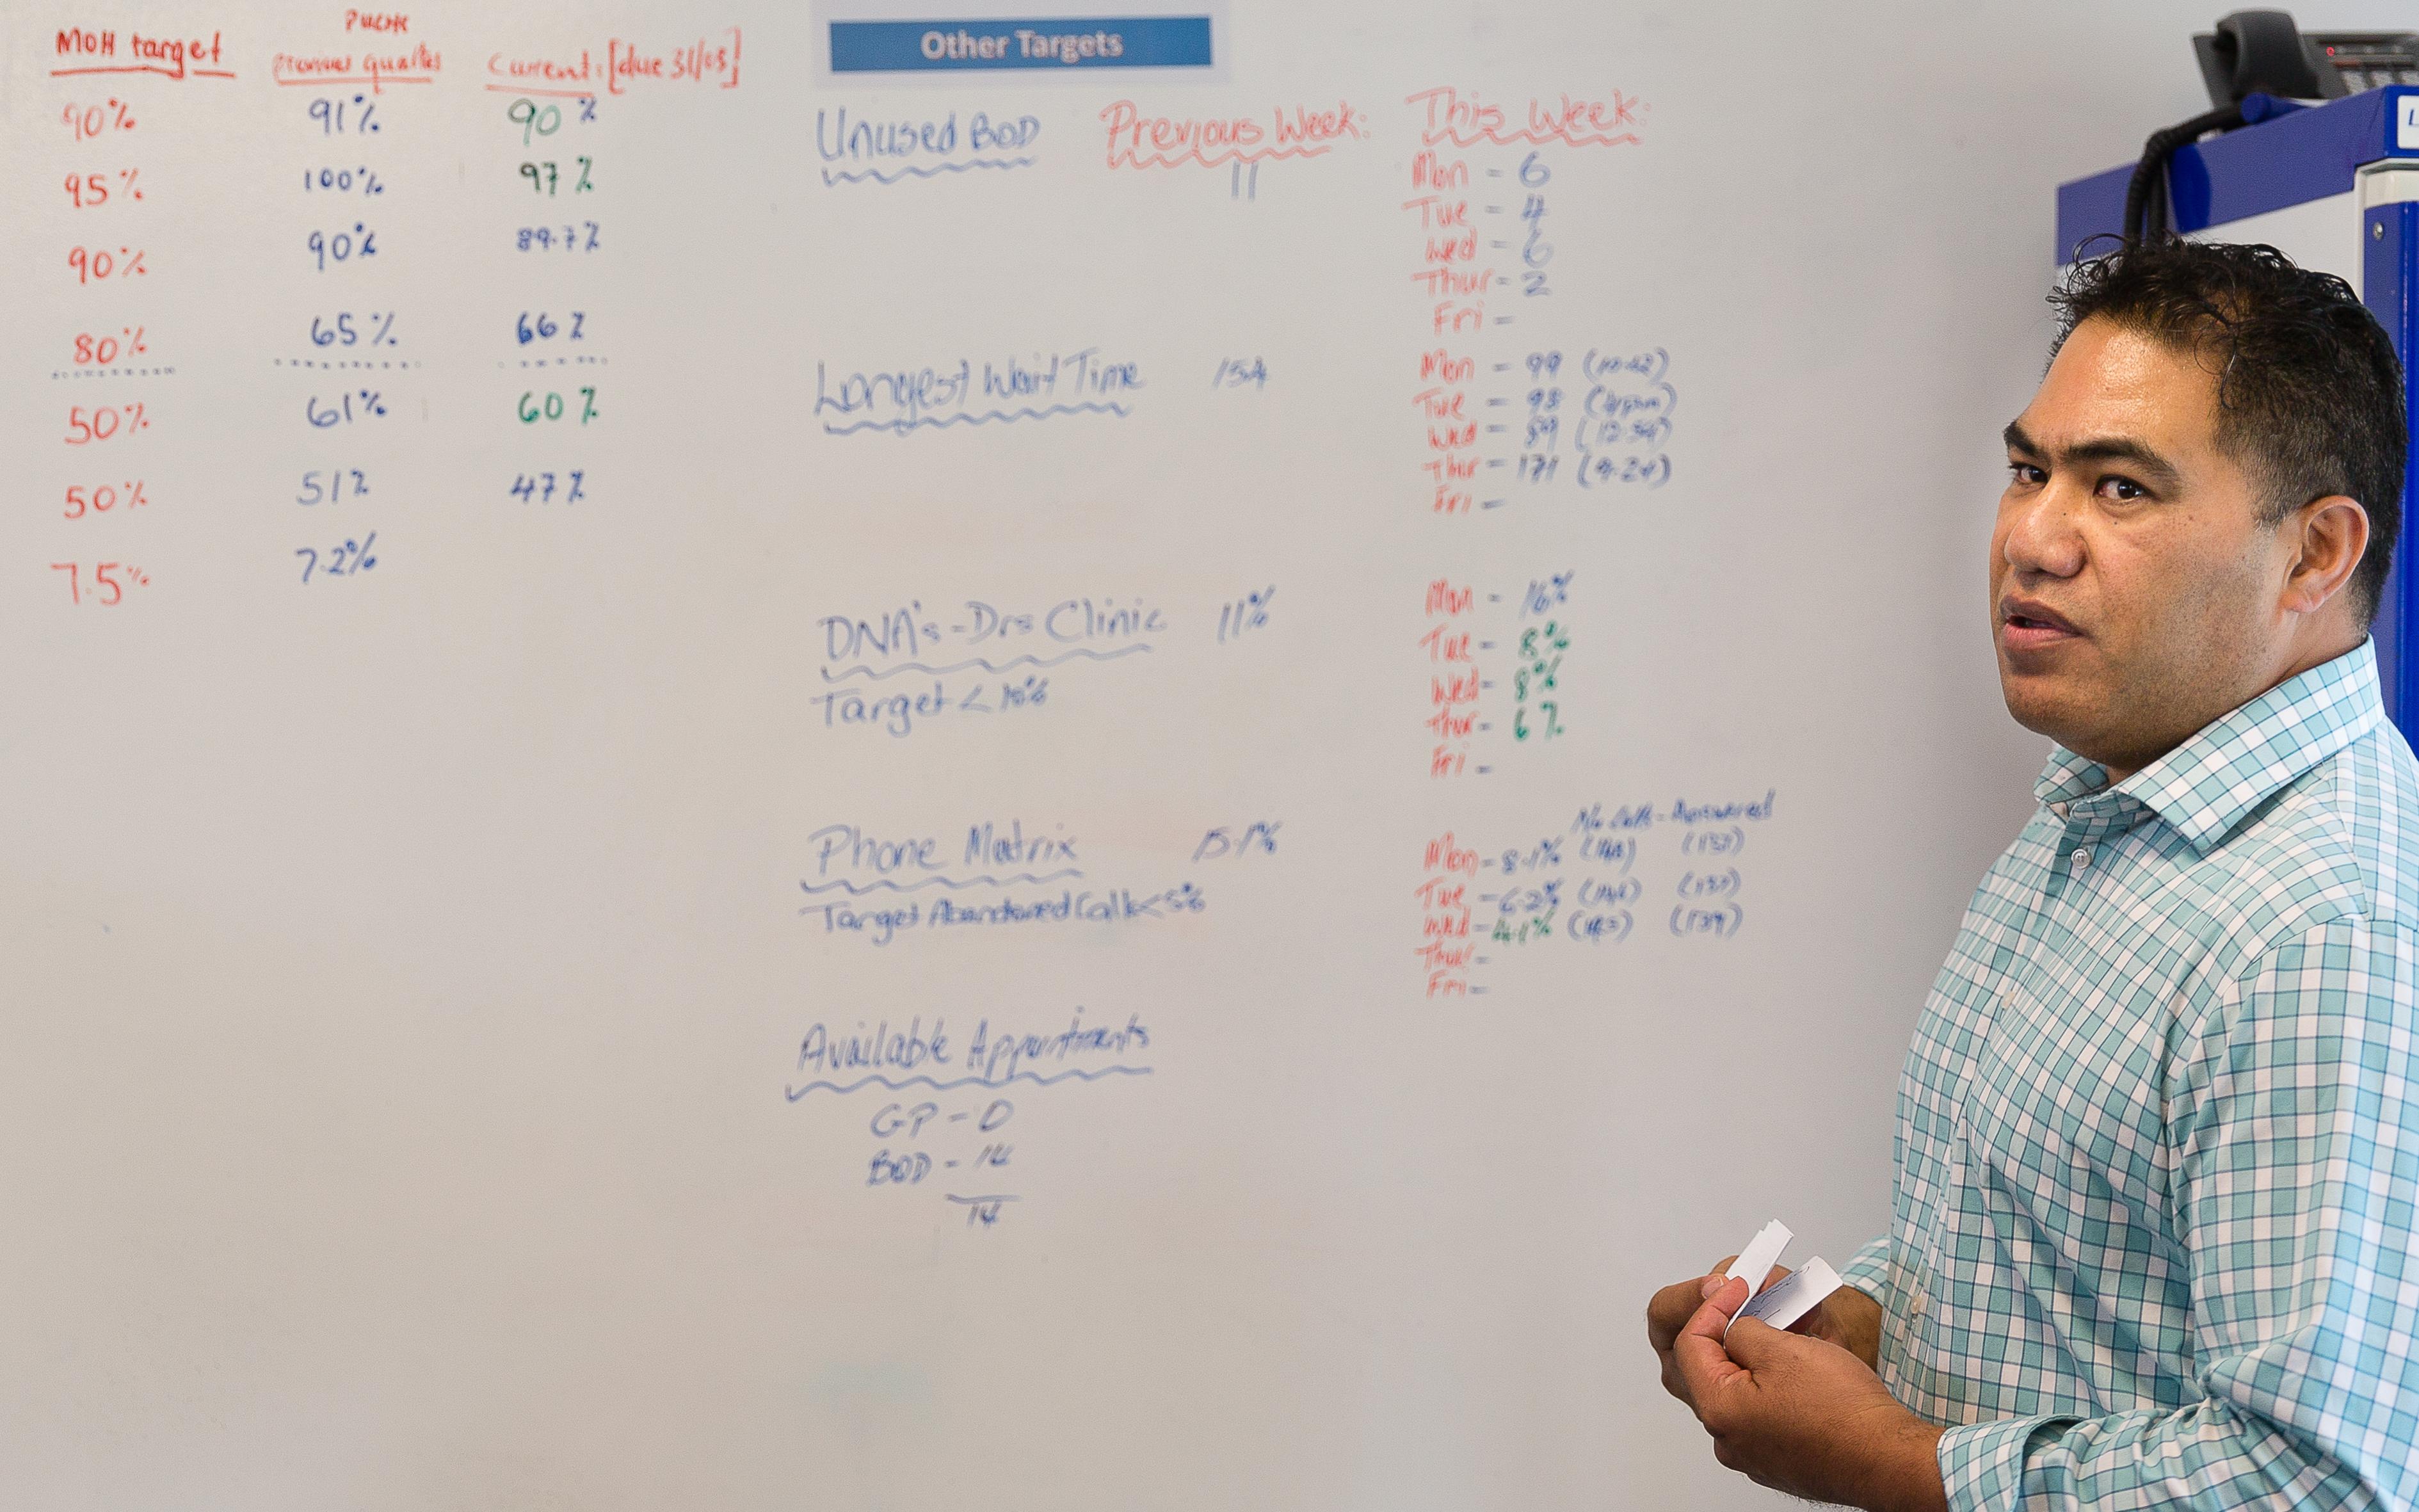 MOH target
Current: [due 31/03]
90% 91% 90%
95% 100% 97%
90% 90% 89.7%
80% 65% 66%
50% 61% 60%
50% 51% 47%
7.5% 7.2%
Other Targets
Unused BOD Previous Week: This Week:
11
Mon - 6
Tue - 4
Wed - 6
Thur - 2
Fri -
Longest Wait Time 154
Mon - 99
Tue - 98
Wed - 89
Thur - 171
Fri -
DNA's - Drs Clinic 11%
Target < 10%
Mon - 16%
Tue - 8%
Wed - 8%
Thur - 6%
Fri -
Phone Matrix 15.1%
Target Abandoned Calls < 5%
Calls - Answered
Mon - 8.1%
Tue - 6.2%
Wed - 4.1% (139)
Thur -
Fri -
Available Appointments
GP - 0
BOD - 14
14